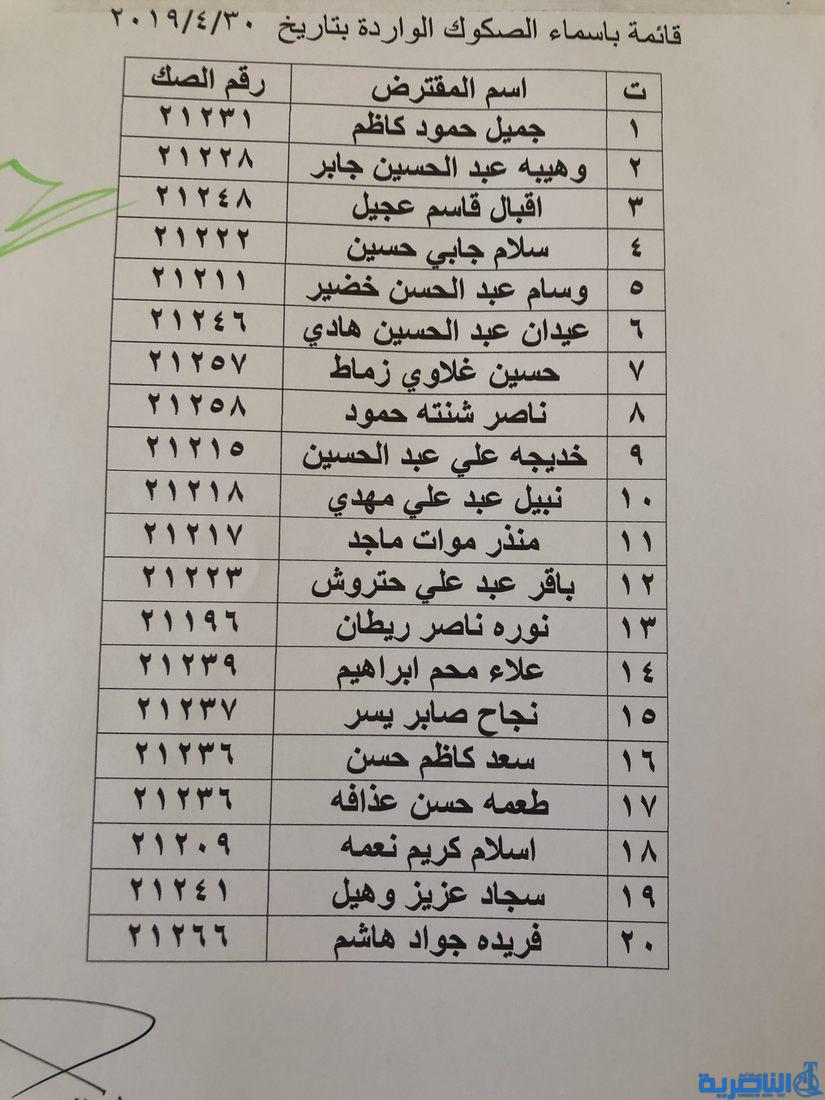 قائمة باسماء الصكوك الواردة بتاريخ ٢٠١٩/٤/٣٠
ت اسم المقترض رقم الصك
١ جميل حمود كاظم ٢١٢٣١
٢ وهيبه عبد الحسين جابر ٢١٢٢٨
٣ اقبال قاسم عجيل ٢١٢٤٨
٤ سلام جابي حسين ٢١٢٢٢
٥ وسام عبد الحسن خضير ٢١٢١١
٦ عيدان عبد الحسين هادي ٢١٢٤٦
٧ حسين غلاوي زماط ٢١٢٥٧
٨ ناصر شنته حمود ٢١٢٥٨
٩ خديجه علي عبد الحسين ٢١٢١٥
١٠ نبيل عبد علي مهدي ٢١٢١٨
١١ منذر موات ماجد ٢١٢١٧
١٢ باقر عبد علي حتروش ٢١٢٢٣
١٣ نوره ناصر ريطان ٢١١٩٦
١٤ علاء محم ابراهيم ٢١٢٣٩
١٥ نجاح صابر يسر ٢١٢٣٧
١٦ سعد كاظم حسن ٢١٢٣٦
١٧ طعمه حسن عذافه ٢١٢٣٦
١٨ اسلام كريم نعمه ٢١٢٠٩
١٩ سجاد عزيز وهيل ٢١٢٤١
٢٠ فريده جواد هاشم ٢١٢٦٦
الناصرية